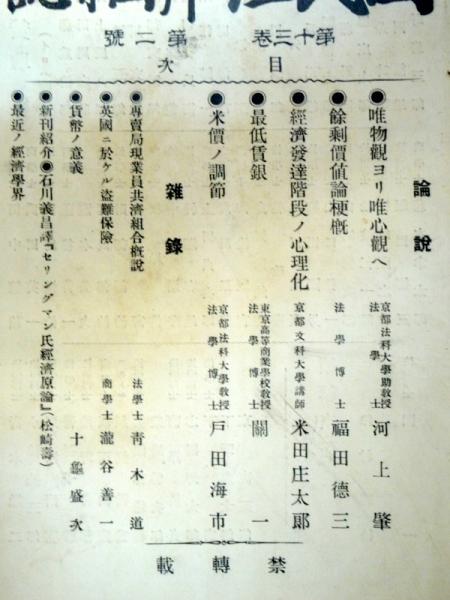 國民經濟雜誌
第十三卷 第二號
目次
論說
●唯物觀ヨリ唯心觀へ 京都法科大學助教授 法學士 河上肇
●餘剩價値論梗概 法學博士 福田德三
●經濟發達階段ノ心理化 京都文科大學講師 米田庄太郎
●最低賃銀 東京高等商業學校教授 法學博士 關一
●米價ノ調節 京都法科大學教授 法學博士 戸田海市
雜錄
●專賣局現業員共濟組合概說 法學士 青木道
●英國ニ於ケル盜難保險 商學士 瀧谷善一
●貨幣ノ意義 十龜盛次
●新刊紹介●石川義昌譯『セリングマン氏經濟原論』(松崎壽)
●最近ノ經濟學界
禁轉載